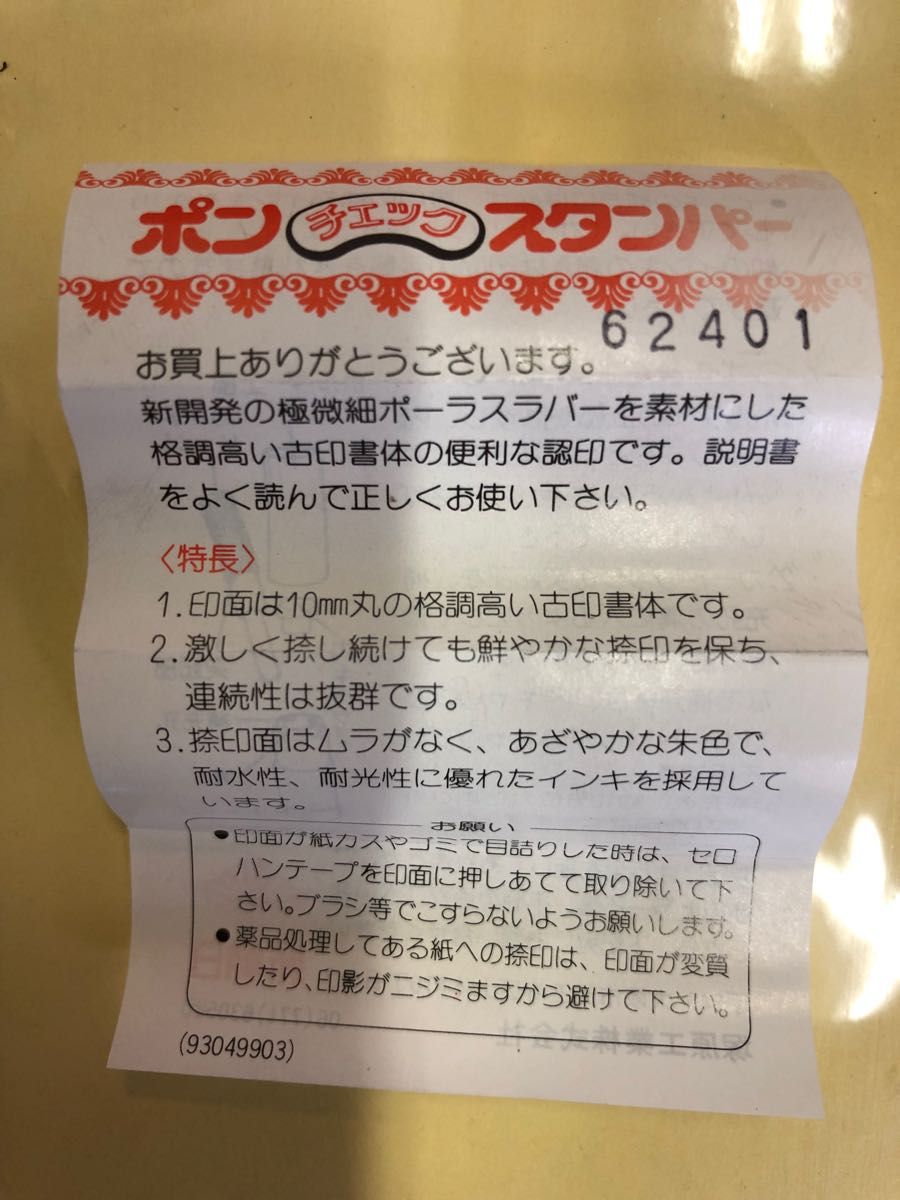 ポンチェックスタンパー
62401
お買上ありがとうございます。
新開発の極微細ポーラスラバーを素材にした
格調高い古印書体の便利な認印です。説明書
をよく読んで正しくお使い下さい。
〈特長〉
1.印面は10mm丸の格調高い古印書体です。
2.激しく捺し続けても鮮やかな捺印を保ち、
連続性は抜群です。
3.捺印面はムラがなく、あざやかな朱色で、
耐水性、耐光性に優れたインキを採用して
います。
お願い
●印面が紙カスやゴミで目詰りした時は、セロ
ハンテープを印面に押しあてて取り除いて下
さい。ブラシ等でこすらないようお願いします。
●薬品処理してある紙への捺印は、印面が変質
したり、印影がニジミますから避けて下さい。
(93049903)
塚原工業株式会社